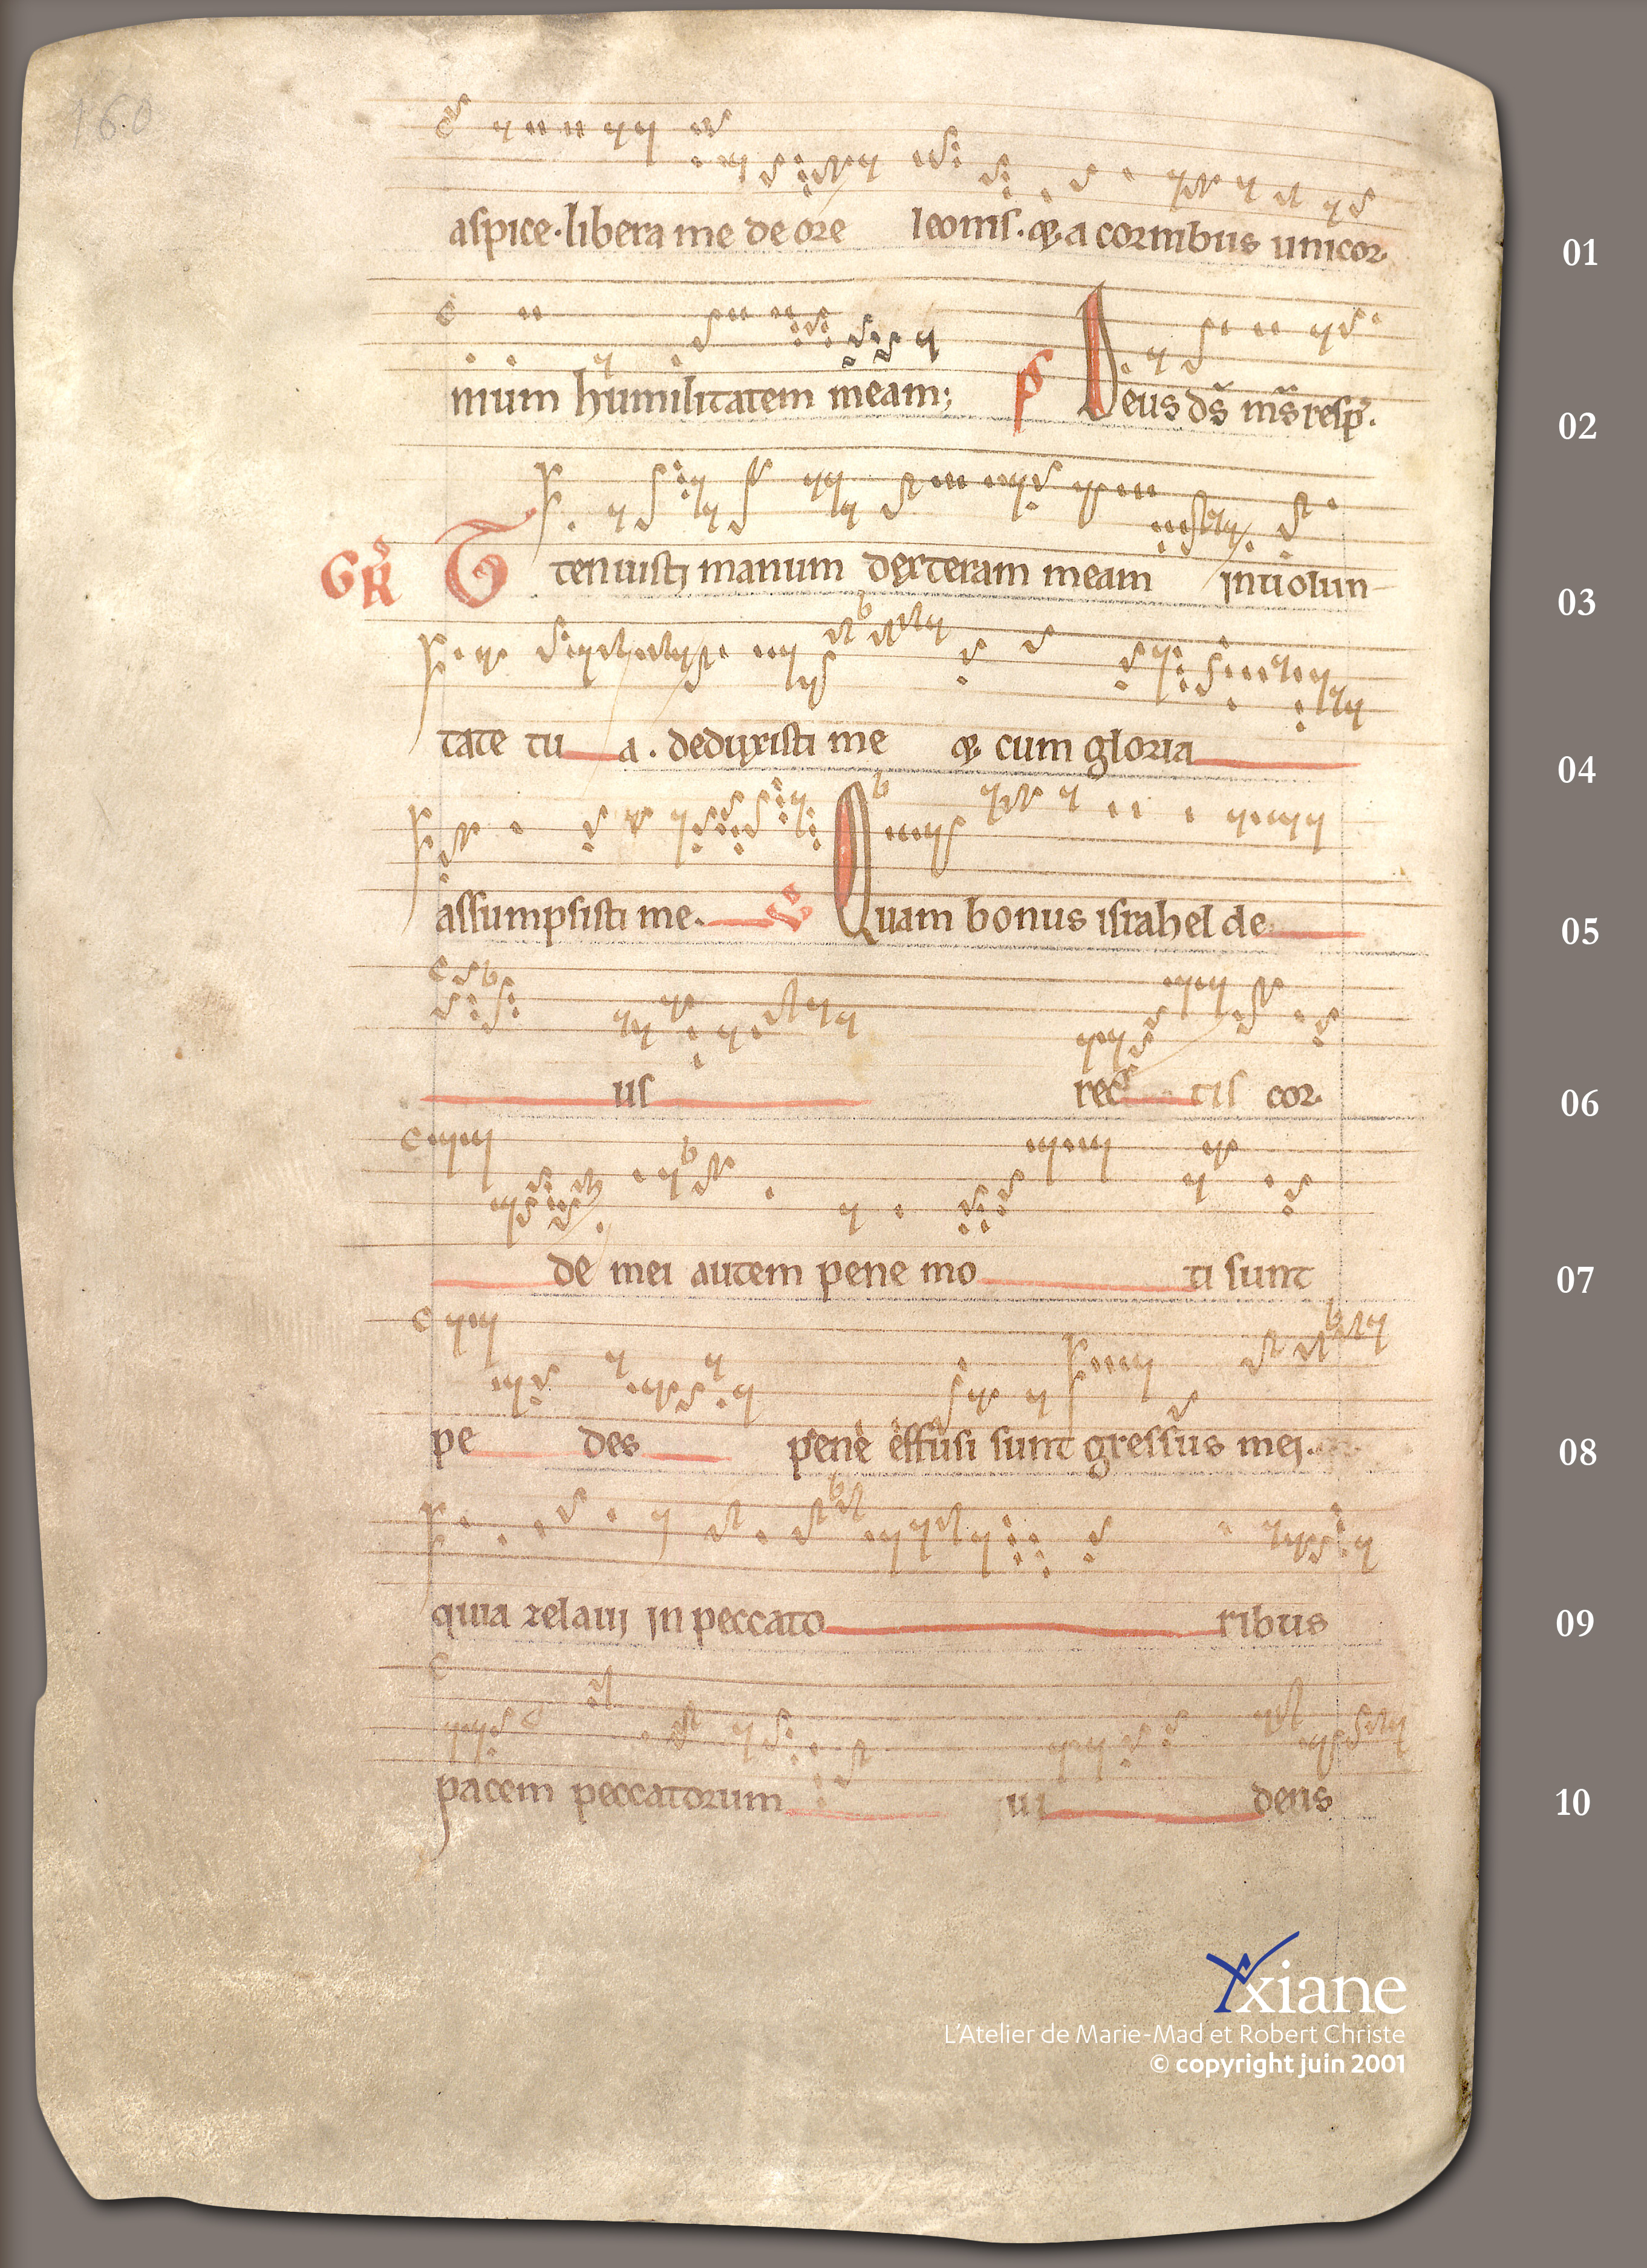 160
aspice. libera me de ore leonis. & a cornibus unicor- 01
nium humilitatem meam; ps Deus ds ms resp. 02
GR Tenuisti manum dexteram meam in uolun- 03
tate tu a. deduxisti me & cum gloria 04
assumpsisti me. V Quam bonus israhel de 05
us rec tis cor- 06
de mei autem pene mo ti sunt 07
pe des pene effusi sunt gressus mei. 08
quia zelaui in peccato ribus 09
pacem peccatorum ui dens 10
Yxiane
L'Atelier de Marie-Mad et Robert Christe
© copyright juin 2001